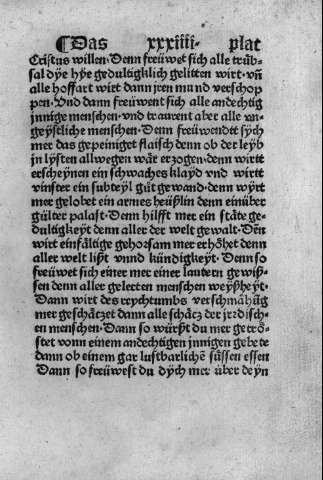 ¶ Das xxxiiii· plat
Cristus willen. Denn freüwet sich alle trüb-
sal dye hye gedultigklich gelitten wirt. vn̄
alle hoffart wirt dann jren mund verschop
pen. Vnd dann freüwent sich alle andechtig
jnnige menschen. vnd traurent aber alle vn-
geystliche menschen. Denn freüwendt sych
mer das gepeiniget flaisch denn ob der leyb
jn lüsten allwegen wär erzogen. denn wirtt
erscheynen ein schwaches klayd vnd wirtt
vinster ein subteyl gůt gewand. denn wyrt
mer gelobet ein armes heüßlin denn ein über
gülter palast. Denn hilfft mer ein stäte ge-
dultigkeyt denn aller der welt gewalt. Deñ
wirt einfältige gehorsam mer erhöhet denn
aller welt lißt vnnd kündigkeyt. Denn so
freüwet sich einer mer einer lautern gewiß-
sen denn aller gelerten menschen weyßheyt.
Dann wirt des reychtumbs verschmähūg
mer geschätzet dann alle schätz der jrrdisch-
en menschen. Dann so würßt du mer getrö-
stet vonn einem andechtigen jnnigen gebete
dann ob einem gar lustbarlichē süssen essen
Dann so freüwest du dych mer über deyn